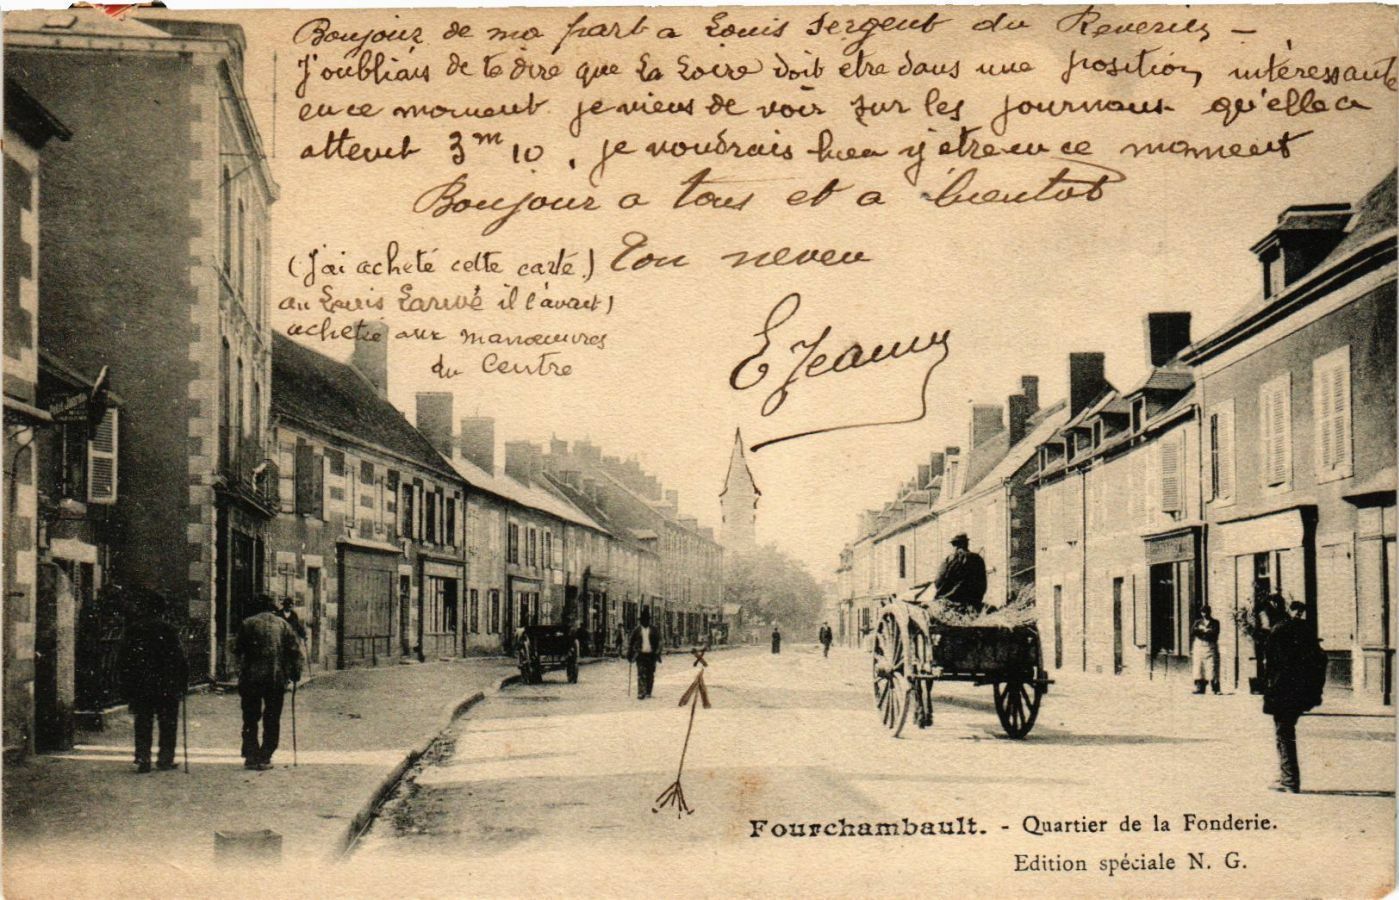 Boujour de ma part a Louis Sergent du Reveries –
J'oubliais de te dire que La Loire doit être dans une position intéressante
en ce moment. je viens de voir sur les journaux qu'elle a
atteint 3m 10, je voudrais bien y être en ce moment
Boujour a tous et a bientot
Ton neveu
(J'ai acheté cette carte)
au Louis Larivé il l'avait)
acheteé aux manœuvres
du Centre
E Jeanny
Fourchambault. - Quartier de la Fonderie.
Edition spéciale N. G.